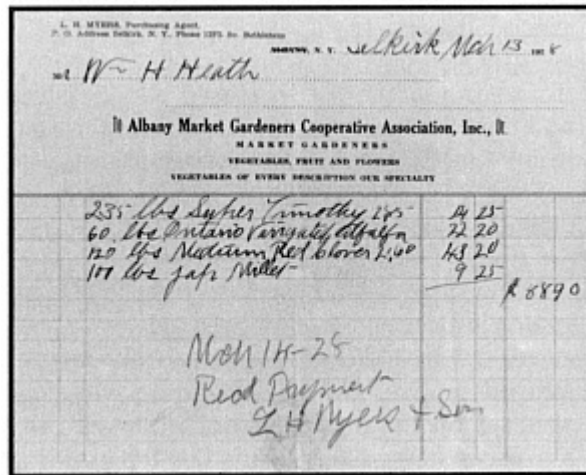 L. H. MYERS, Purchasing Agent,
P. O. Address Selkirk, N. Y., Phone 12F3, So. Bethlehem
ALBANY, N. Y. Selkirk Mch 13 1928
M Wm H Heath
To Albany Market Gardeners Cooperative Association, Inc., Dr.
MARKET GARDENERS
VEGETABLES, FRUIT AND FLOWERS
VEGETABLES OF EVERY DESCRIPTION OUR SPECIALTY
235 lbs Timothy 14 25
60 lbs Ontario Alfalfa 22 20
120 lbs Medium Red Clover 43 20
100 lbs Jap Millet 9 25
8890
Mch 14-28
Recd Payment
L H Myers + Son